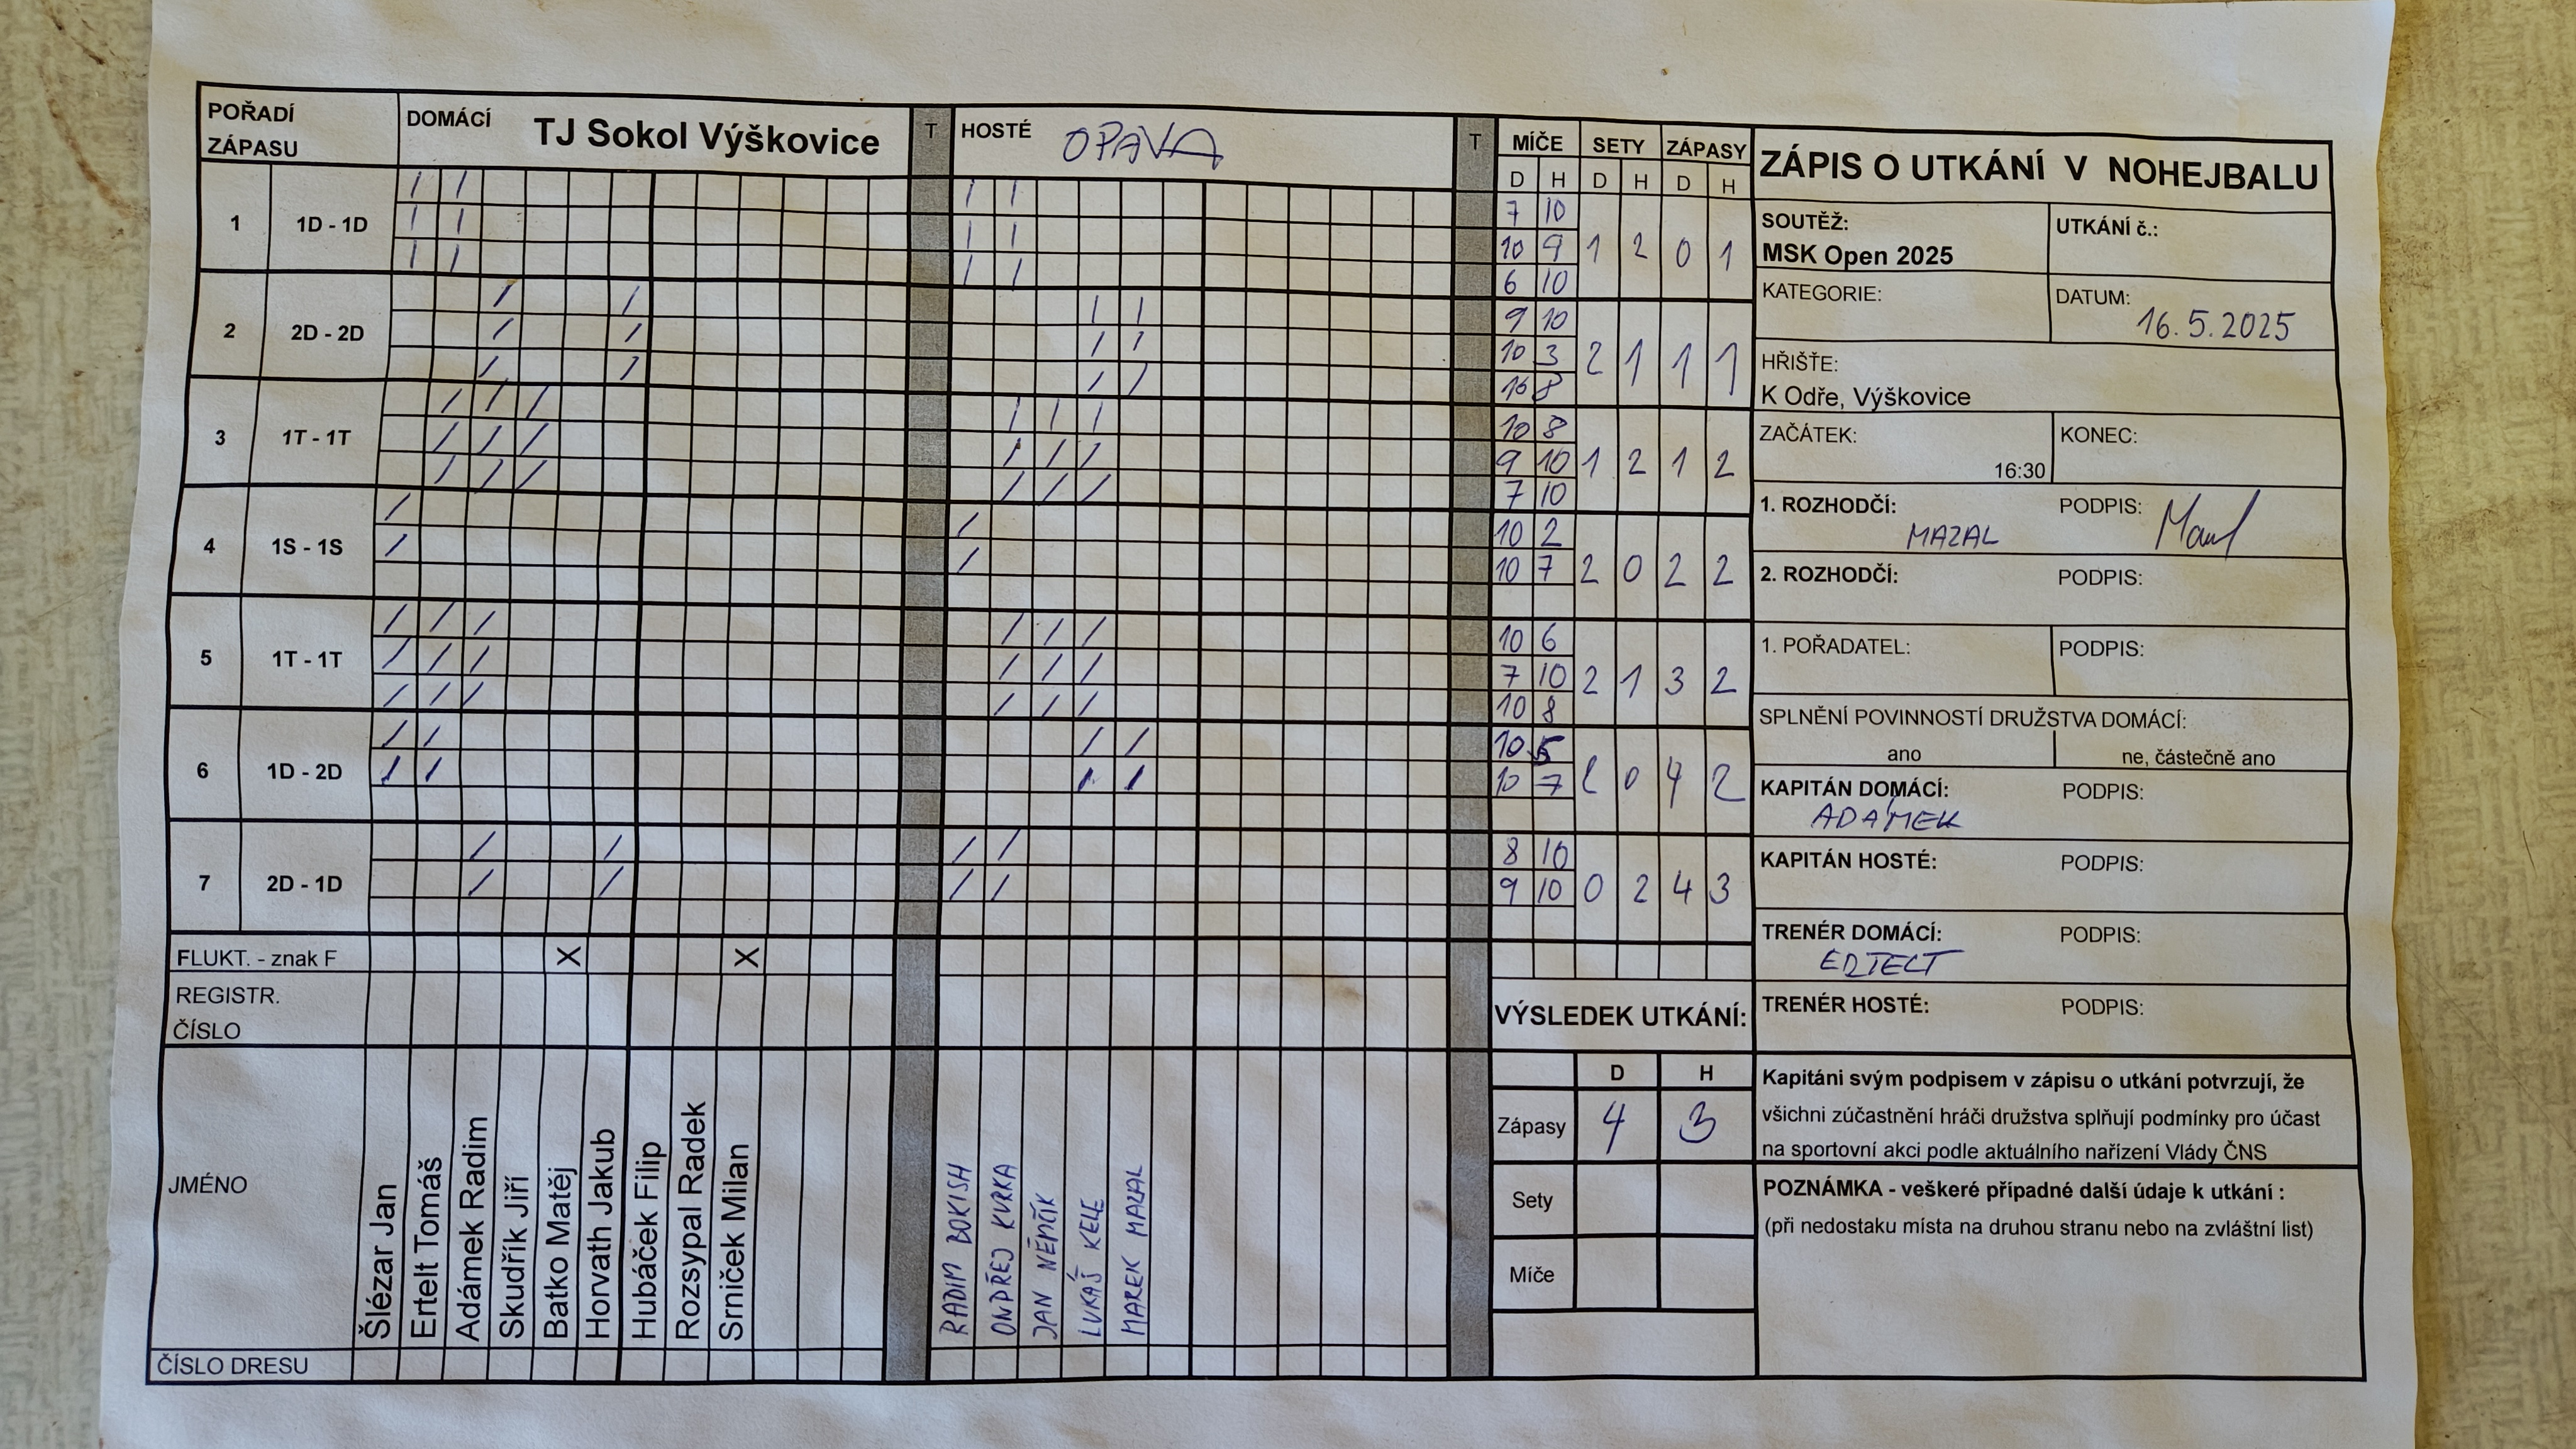 POŘADÍ ZÁPASU DOMÁCÍ TJ Sokol Výškovice T HOSTÉ OPAVA T MÍČE SETY ZÁPASY
D H D H D H
1 1D - 1D
7 10
10 9 1 2 0 1
6 10
2 2D - 2D
9 10
10 3 2 1 1 1
8
3 1T - 1T
10 8
9 10 1 2 1 2
7 10
4 1S - 1S
10 2
10 7 2 0 2 2
5 1T - 1T
10 6
7 10 2 1 3 2
10 8
6 1D - 2D
10 5
10 7 0 4 2
7 2D - 1D
8 10
9 10 0 2 4 3
FLUKT. - znak F X X
REGISTR.
ČÍSLO
JMÉNO
Šlézar Jan
Ertelt Tomáš
Adámek Radim
Skudřík Jiří
Batko Matěj
Horvath Jakub
Hubáček Filip
Rozsypal Radek
Srniček Milan
RADIM BOKISH
ONDŘEJ KVRKA
JAN NĚMČÍK
LUKÁŠ KELE
MAREK MAZAL
ČÍSLO DRESU
VÝSLEDEK UTKÁNÍ:
D H
Zápasy 4 3
Sety
Míče
ZÁPIS O UTKÁNÍ V NOHEJBALU
SOUTĚŽ: UTKÁNÍ č.:
MSK Open 2025
KATEGORIE: DATUM:
16.5.2025
HŘIŠTĚ:
K Odře, Výškovice
ZAČÁTEK: KONEC:
16:30
1. ROZHODČÍ: PODPIS:
MAZAL
2. ROZHODČÍ: PODPIS:
1. POŘADATEL: PODPIS:
SPLNĚNÍ POVINNOSTÍ DRUŽSTVA DOMÁCÍ:
ano ne, částečně ano
KAPITÁN DOMÁCÍ: PODPIS:
ADÁMEK
KAPITÁN HOSTÉ: PODPIS:
TRENÉR DOMÁCÍ: PODPIS:
ERTELT
TRENÉR HOSTÉ: PODPIS:
Kapitáni svým podpisem v zápisu o utkání potvrzují, že
všichni zúčastnění hráči družstva splňují podmínky pro účast
na sportovní akci podle aktuálního nařízení Vlády ČNS
POZNÁMKA - veškeré případné další údaje k utkání :
(při nedostaku místa na druhou stranu nebo na zvláštní list)